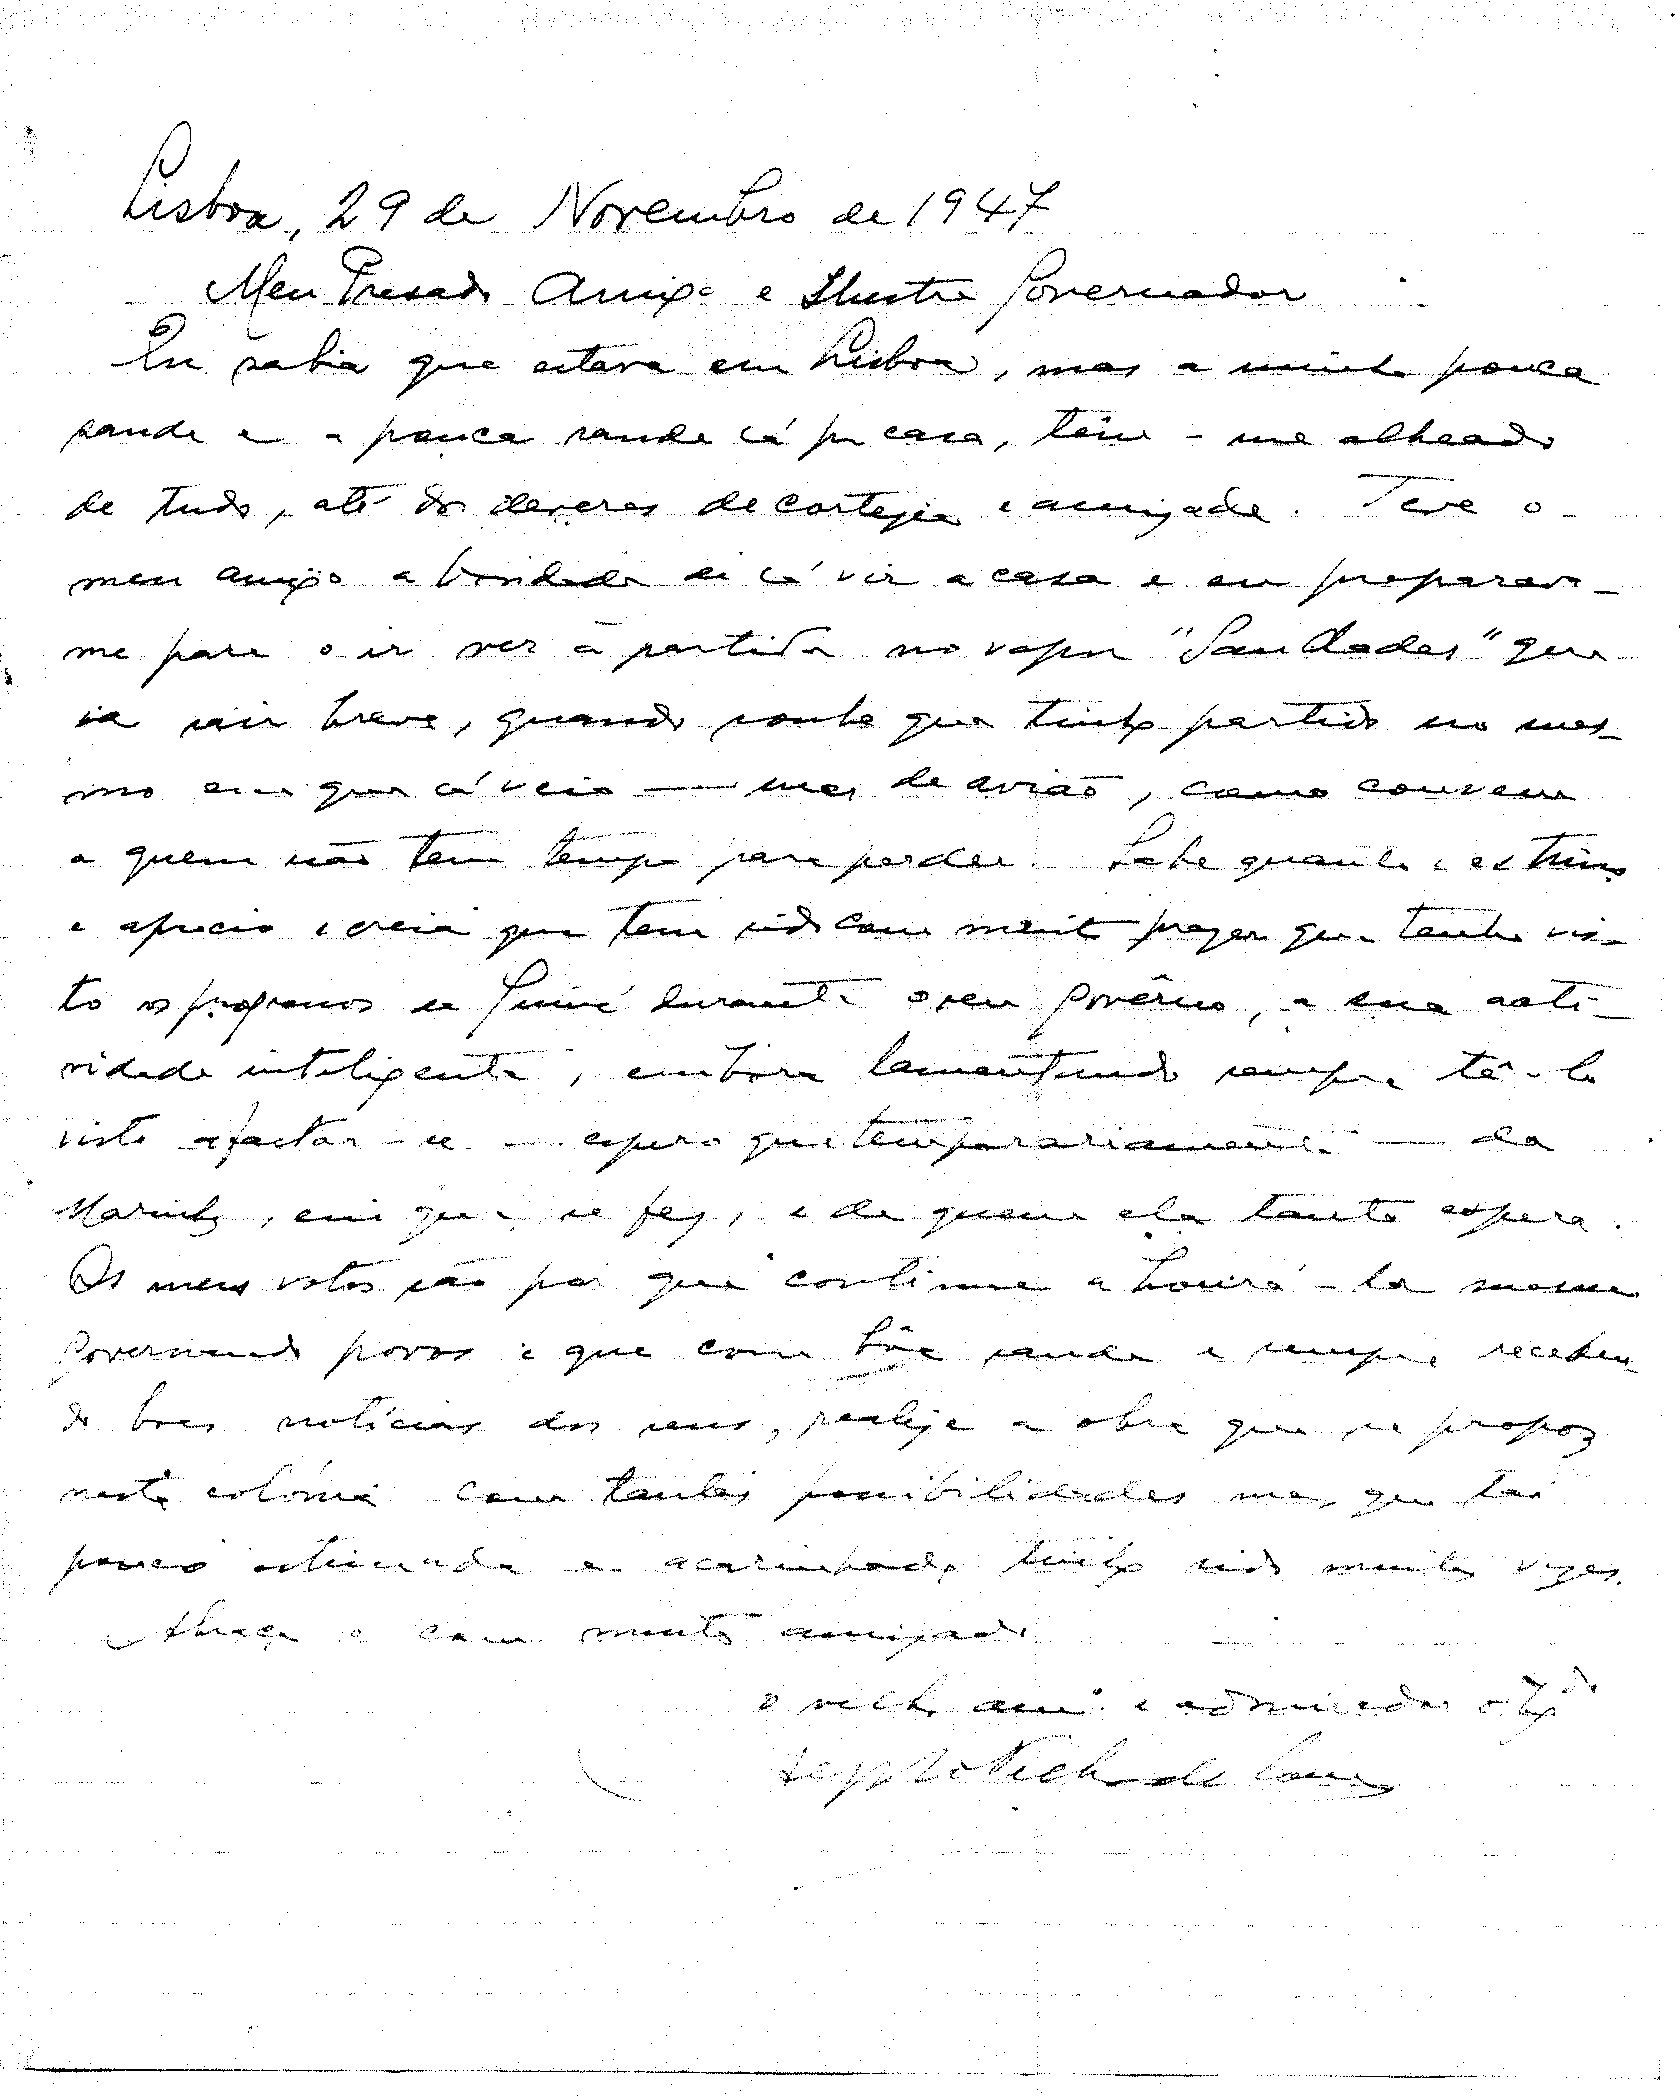 Lisboa, 29 de Novembro de 1947
Meu Presado Amigo e Ilustre Governador
Eu sabia que estava em Lisboa, mas a minha pouca
saude e a pouca saude cá por casa, têm-me alheado
de tudo, até dos deveres de cortezia e amizade. Teve o
meu amigo a bondade de cá vir a casa e eu preparava-
me para o ir ver à partida no vapor "Saudades" que
ia sair breve, quando soube que tinha partido no mes-
mo em que cá veio — mas de avião, como convem
a quem não tem tempo para perder. Sabe quanto o estimo
e aprecio e creia que tem sido com muito prazer que tenho vis-
to os progressos da Guiné durante o seu Govêrno, a sua acti-
vidade inteligente, embora lamentando sempre tê-lo
visto afastar-se — espero que temporariamente — da
Marinha, em que se fez, e de quem ela tanto espera.
Os meus votos são por que continue a honrá-la mesmo
governando povos e que com bôa saude e sempre receben-
do boas notícias dos seus, realize a obra que se propoz
nesta colónia com tantas possibilidades mas que tão
pouco estimada e acarinhada tinha sido muitas vezes.
Abraça-o com muita amizade
o velho am.º e admirador